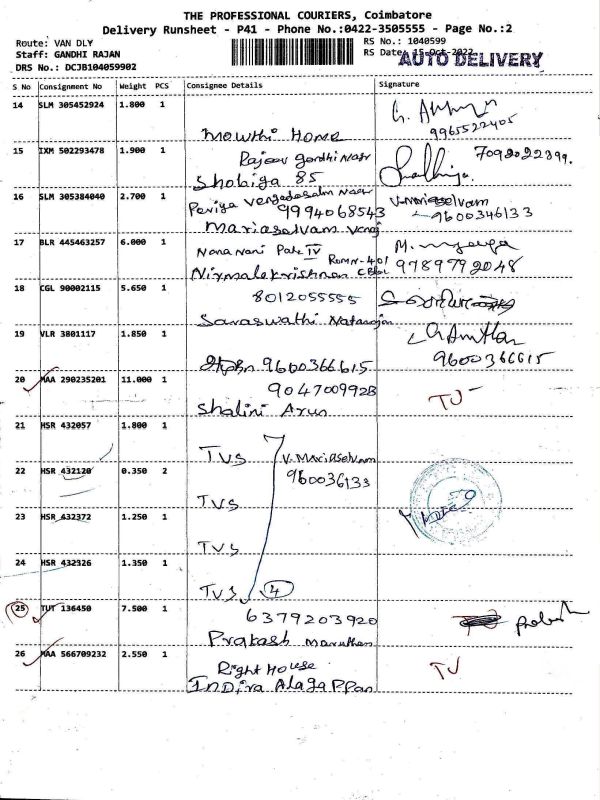 THE PROFESSIONAL COURIERS, Coimbatore
Delivery Runsheet - P41 - Phone No.:0422-3505555 - Page No.:2
Route: VAN DLY
RS No.: 1040599
Staff: GANDHI RAJAN
RS Date: 15-Oct-2022
AUTO DELIVERY
DRS No.: DCJB104059902
S No Consignment No Weight PCS Consignee Details Signature
14 SLM 305452924 1.800 1
9965522405
Mowthi Home
15 IXM 502293478 1.900 1
Rajeev gandhi Nagr
7092022399.
Shobiga 85
16 SLM 305384040 2.700 1
Periya Vengadasalm Nagr
9994068543
V.Mariaselvam
9600346133
Mariaselvam Venaj
17 BLR 445463257 6.000 1
Nana Nani Park IV
Room N-401
9789792048
Nirmalakrishnan
18 CGL 90002115 5.650 1
8012055555
Saraswathi Natarajan
19 VLR 3801117 1.850 1
9600366615
9600366615
20 MAA 290235201 11.000 1
9047009928
TJ
Shalini Arun
21 HSR 432057 1.800 1
TVS
V.Mariaselvam
22 HSR 432120 0.350 2
960036133
TVS
23 HSR 432372 1.250 1
TVS
24 HSR 432326 1.350 1
TVS 4
25 TUT 136450 7.500 1
6379203920
Prakash Maruthan
26 MAA 566709232 2.550 1
Right House
TJ
Indira Alagappan